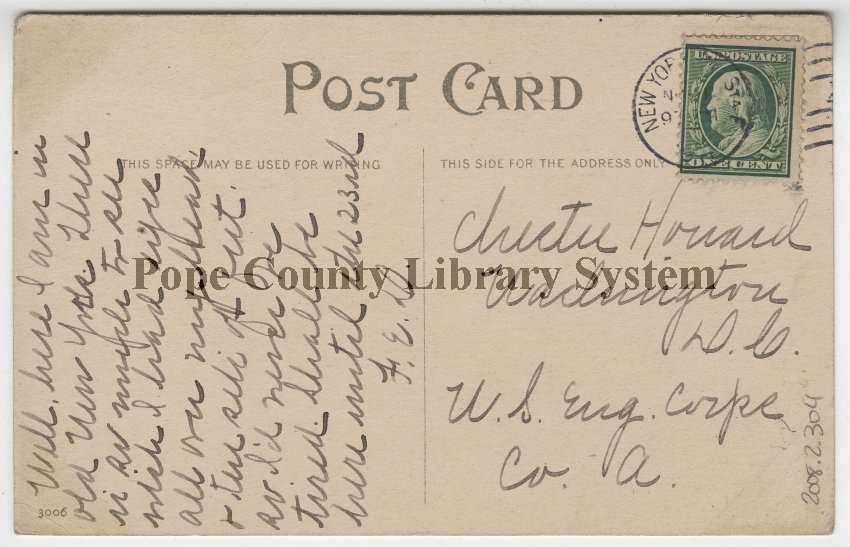 POST CARD
THIS SPACE MAY BE USED FOR WRITING
THIS SIDE FOR THE ADDRESS ONLY
NEW YORK
STA. F
U.S. POSTAGE
ONE CENT
Well, here I am in
old New York. There
is so much to see
wish I had eyes
all over my head,
& ten sets of feet.
so I'd never be
tired. Shall be
here until the 23rd
F. E. D.
Chester Howard
Washington
D.C.
U.S. Eng. Corps
Co. A.
3006
2008.2.304
Pope County Library System